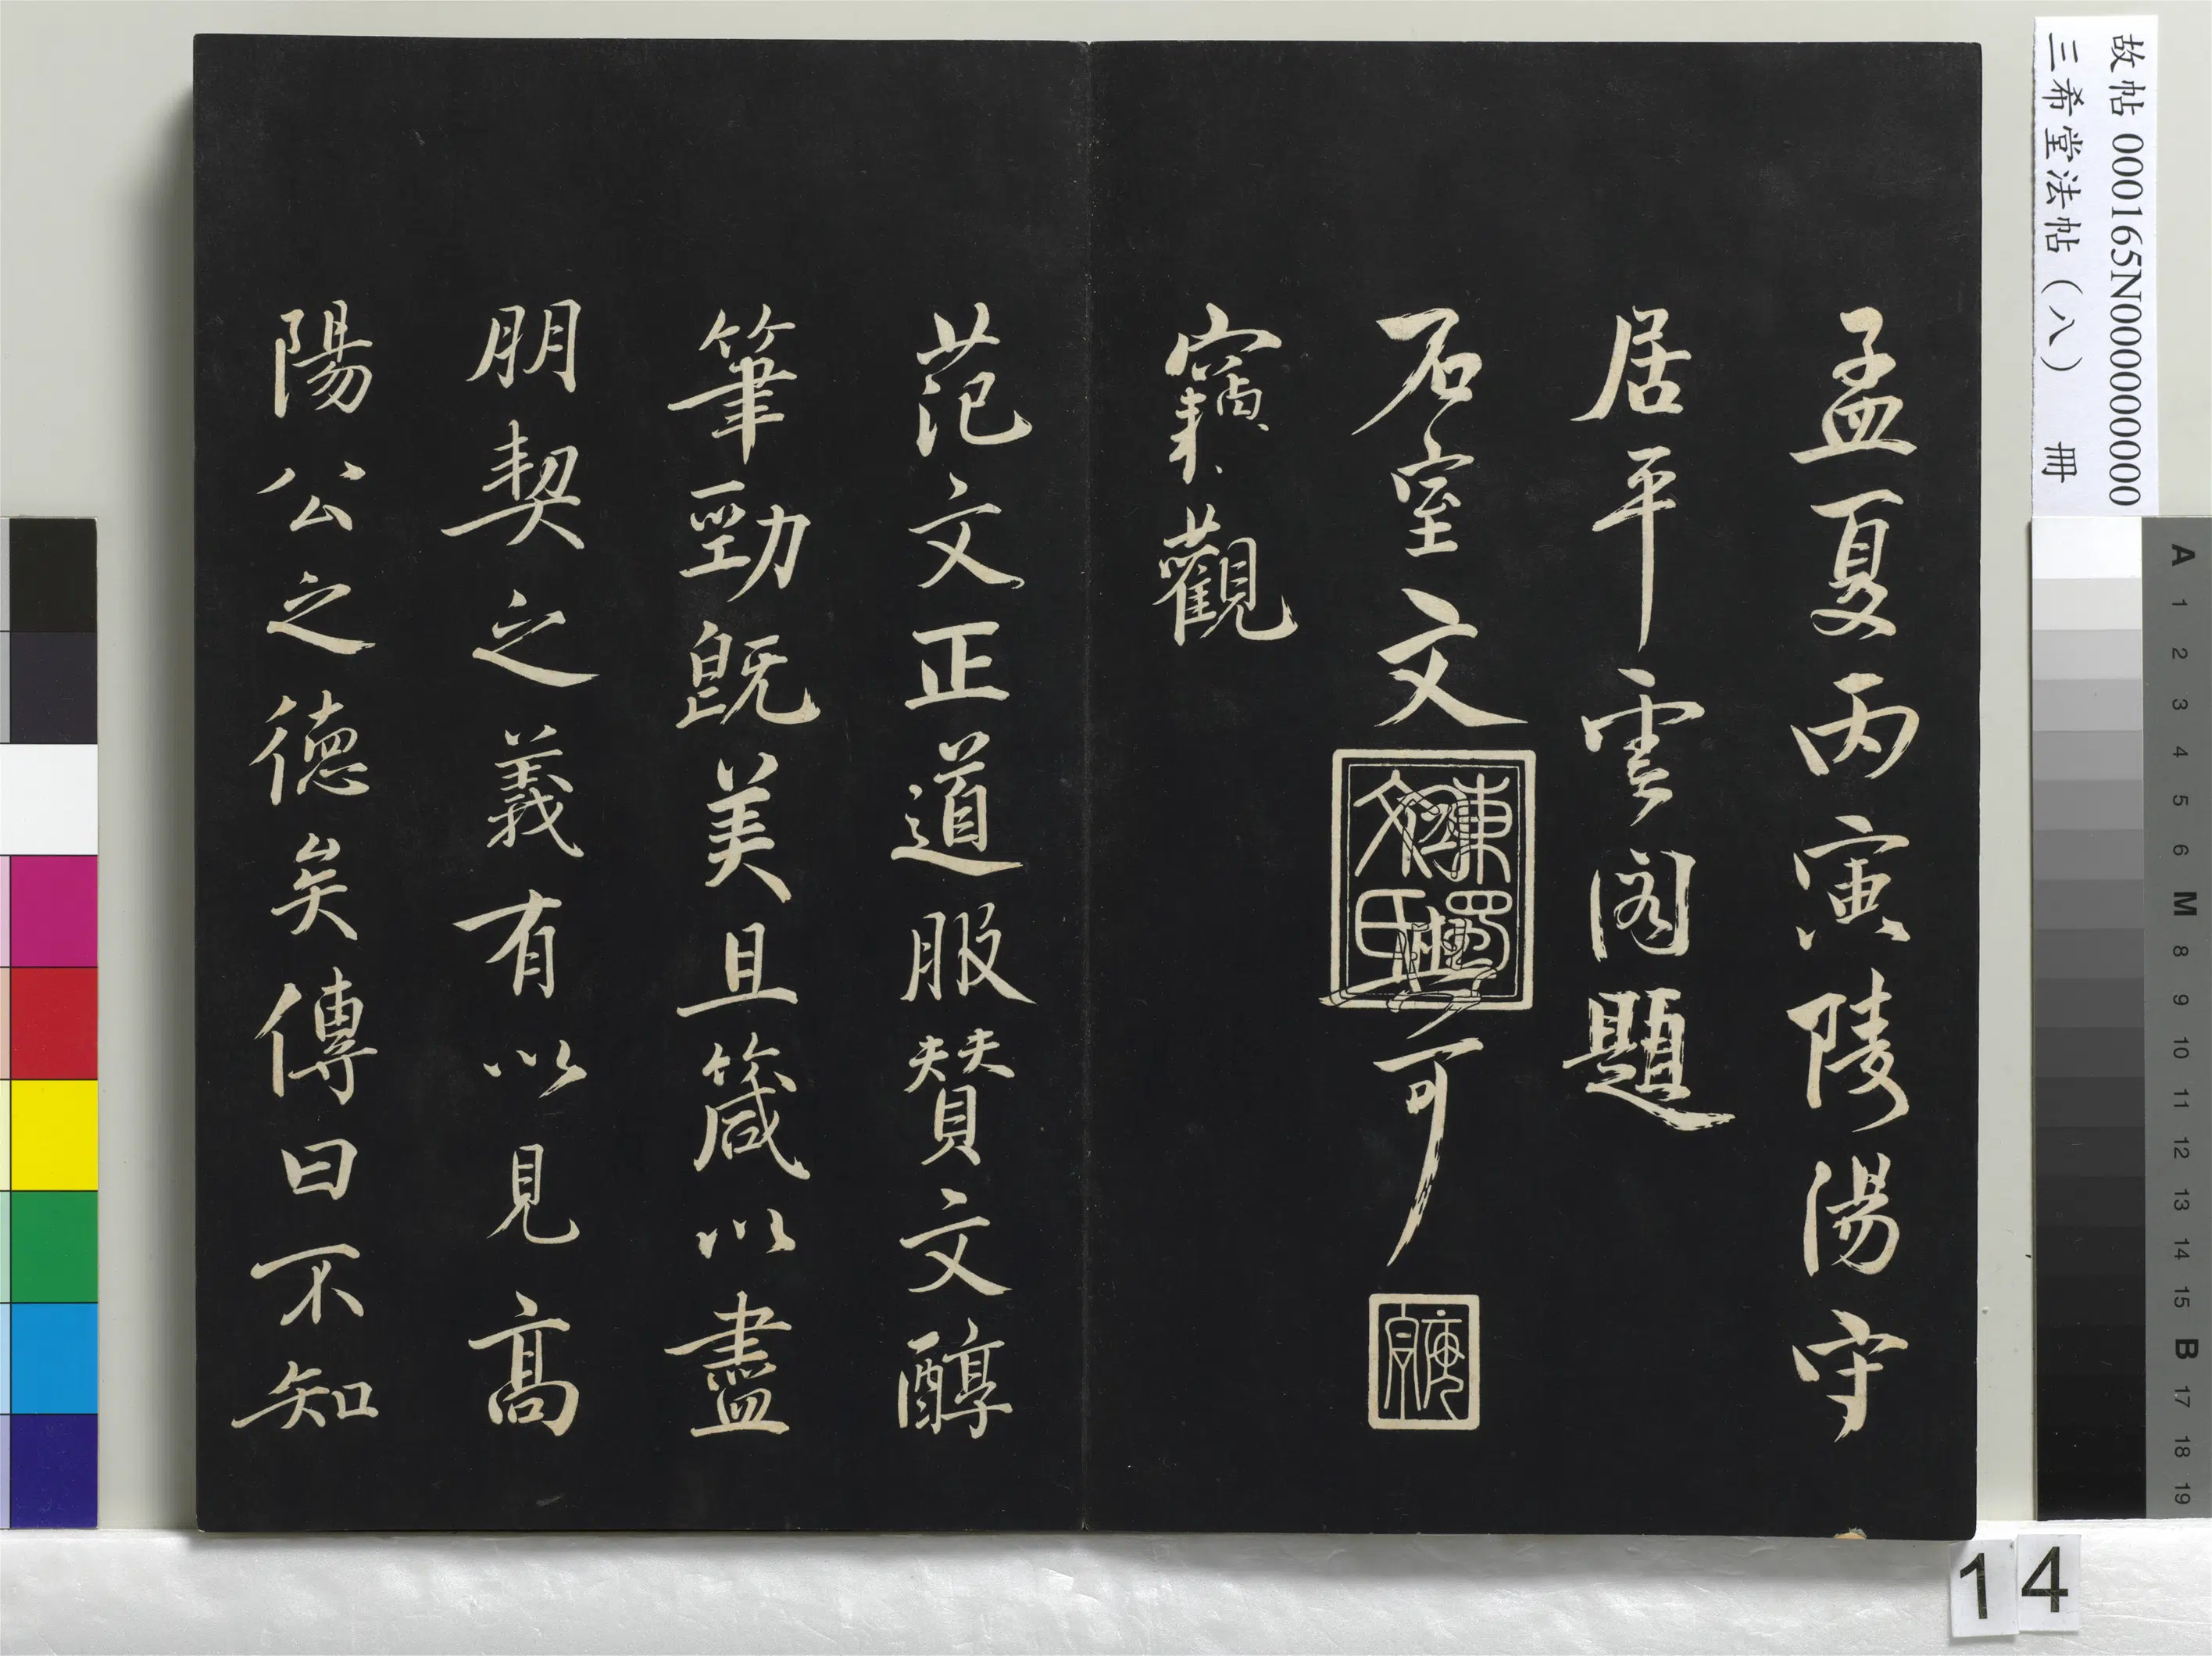 孟夏丙寅陵陽守
居平雲閣題
石室文與可
寳觀
東蜀文氏
范文正道服贊文醇
筆勁既美且箴以盡
朋契之義有以見髙
陽公之德矣傳曰不知
故帖 000165N000000000
三希堂法帖(八) 冊
A 1 2 3 4 5 6 M 8 9 10 11 12 13 14 15 B 17 18 19
14